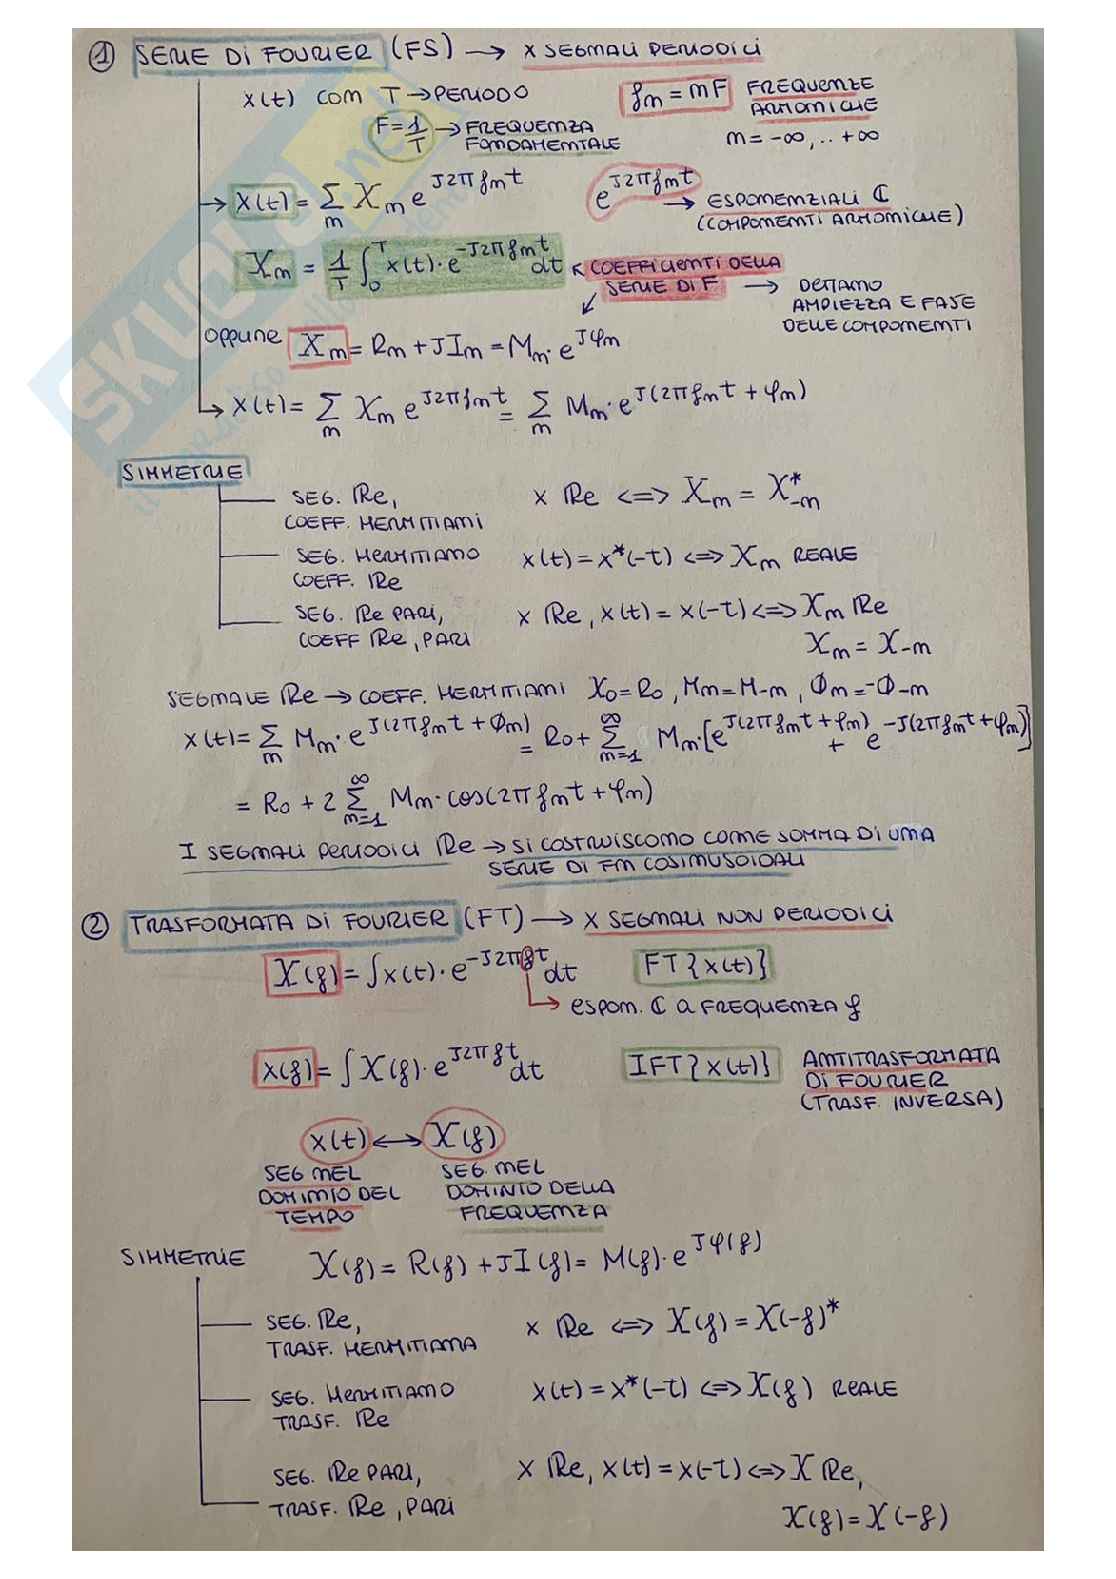 ① SERIE DI FOURIER (FS) → X SEGNALI PERIODICI
x(t) CON T → PERIODO
fn = nF FREQUENZE ARMONICHE
F = 1/T → FREQUENZA FONDAMENTALE
n = -∞, .. +∞
→ x(t) = Σn Xn e^(J2πfnt)
e^(J2πfnt) → ESPONENZIALI ℂ
(COMPONENTI ARMONICHE)
Xn = 1/T ∫₀ᵀ x(t)·e^(-J2πfnt) dt ← COEFFICIENTI DELLA SERIE DI F → DETTANO AMPIEZZA E FASE DELLE COMPONENTI
OPPURE Xn = Rn + JIn = Mn·e^(Jφn)
→ x(t) = Σn Xn e^(J2πfnt) = Σn Mn·e^(J(2πfnt + φn))
SIMMETRIE
SEG. Re, x Re <=> Xn = X*-n
COEFF. HERMITIANI
SEG. HERMITIANO x(t) = x*(-t) <=> Xn REALE
COEFF. Re
SEG. Re PARI, x Re, x(t) = x(-t) <=> Xn Re
COEFF Re, PARI Xn = X-n
SEGNALE Re → COEFF. HERMITIANI X0 = R0, Mn = M-n, Φn = -Φ-n
x(t) = Σn Mn·e^(J(2πfnt + Φn)) = R0 + Σ(n=1, ∞) Mn·[e^(J(2πfnt + φn)) + e^(-J(2πfnt + φn))]
= R0 + 2 Σ(n=1, ∞) Mn·cos(2πfnt + φn)
I SEGNALI PERIODICI Re → SI COSTRUISCONO COME SOMMA DI UNA
SERIE DI FN COSINUSOIDALI
② TRASFORMATA DI FOURIER (FT) → X SEGNALI NON PERIODICI
X(f) = ∫x(t)·e^(-J2πft) dt FT{x(t)}
→ ESPON. ℂ A FREQUENZA f
x(f) = ∫X(f)·e^(J2πft) dt IFT{x(t)} ANTITRASFORMATA
DI FOURIER
(TRASF. INVERSA)
x(t) ↔ X(f)
SEG NEL DOMINIO DEL TEMPO
SEG. NEL DOMINIO DELLA FREQUENZA
SIMMETRIE X(f) = R(f) + JI(f) = M(f)·e^(Jφ(f))
SEG. Re, x Re <=> X(f) = X(-f)*
TRASF. HERMITIANA
SEG. HERMITIANO x(t) = x*(-t) <=> X(f) REALE
TRASF. Re
SEG. Re PARI, x Re, x(t) = x(-t) <=> X Re,
TRASF. Re, PARI X(f) = X(-f)